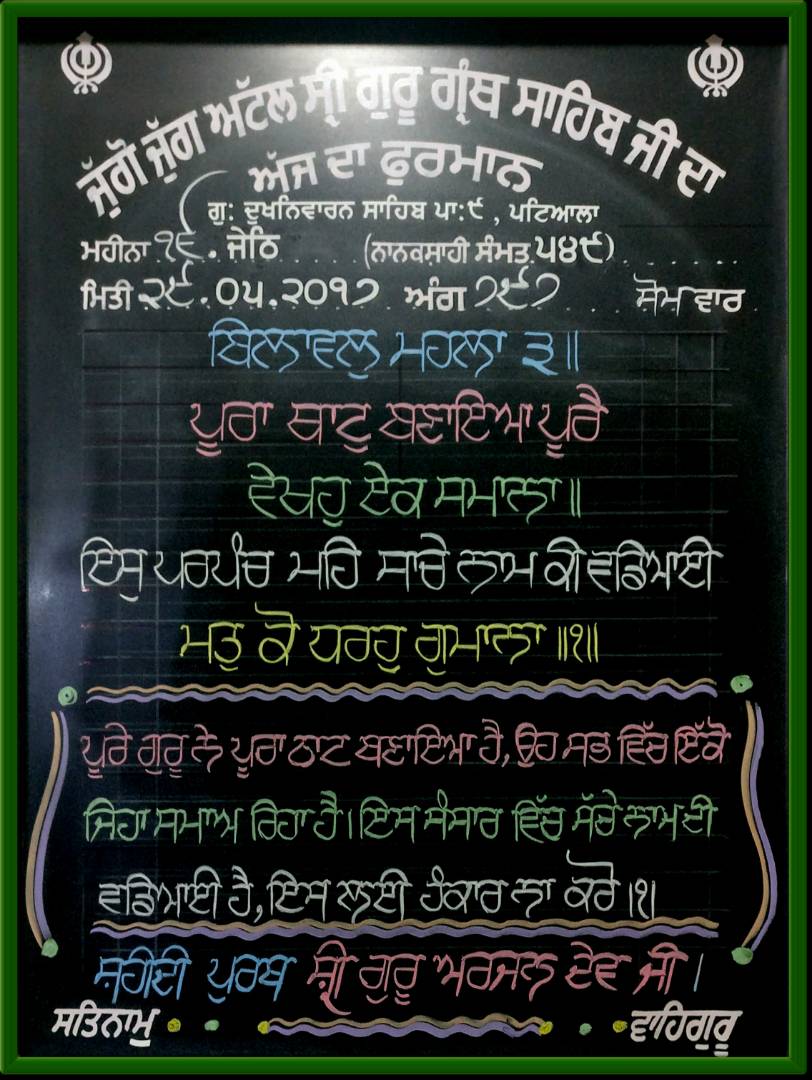 ਜੁੱਗੋ ਜੁੱਗ ਅਟੱਲ ਸ੍ਰੀ ਗੁਰੂ ਗ੍ਰੰਥ ਸਾਹਿਬ ਜੀ ਦਾ
ਅੱਜ ਦਾ ਫੁਰਮਾਨ
ਗੁ: ਦੁਖਨਿਵਾਰਨ ਸਾਹਿਬ ਪਾ:੯, ਪਟਿਆਲਾ
ਮਹੀਨਾ ੧੬. ਜੇਠਿ (ਨਾਨਕਸ਼ਾਹੀ ਸੰਮਤ ੫੪੯)
ਮਿਤੀ ੨੯.੦੫.੨੦੧੭ ਅੰਗ ੭੯੭ ਸੋਮਵਾਰ
ਬਿਲਾਵਲੁ ਮਹਲਾ ੩॥
ਪੂਰਾ ਥਾਟੁ ਬਣਾਇਆ ਪੂਰੈ
ਵੇਖਹੁ ਏਕ ਸਮਾਨਾ॥
ਇਸੁ ਪਰਪੰਚ ਮਹਿ ਸਾਚੇ ਨਾਮ ਕੀ ਵਡਿਆਈ
ਮਤੁ ਕੋ ਧਰਹੁ ਗੁਮਾਨਾ ॥੧॥
ਪੂਰੇ ਗੁਰੂ ਨੇ ਪੂਰਾ ਠਾਟ ਬਣਾਇਆ ਹੈ, ਉਹ ਸਭ ਵਿੱਚ ਇੱਕੋ
ਜਿਹਾ ਸਮਾਅ ਰਿਹਾ ਹੈ। ਇਸ ਸੰਸਾਰ ਵਿੱਚ ਸੱਚੇ ਨਾਮ ਦੀ
ਵਡਿਆਈ ਹੈ, ਇਸ ਲਈ ਹੰਕਾਰ ਨਾ ਕਰੋ।੧।
ਸ਼ਹੀਦੀ ਪੁਰਬ ਸ਼੍ਰੀ ਗੁਰੂ ਅਰਜਨ ਦੇਵ ਜੀ।
ਸਤਿਨਾਮੁ ਵਾਹਿਗੁਰੂ